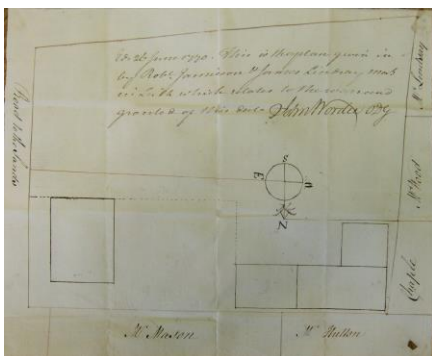 Ed. 26 June 1770. This is the plan given in
by Robt. Jamieson & James Lindsay
in Leith which relates to the warrand
granted of this date John Wordie
Road to the Sands
Mr Lindsay
Mr Wood
Chaple
S
E
N
Mr Mason
Mr Hutton